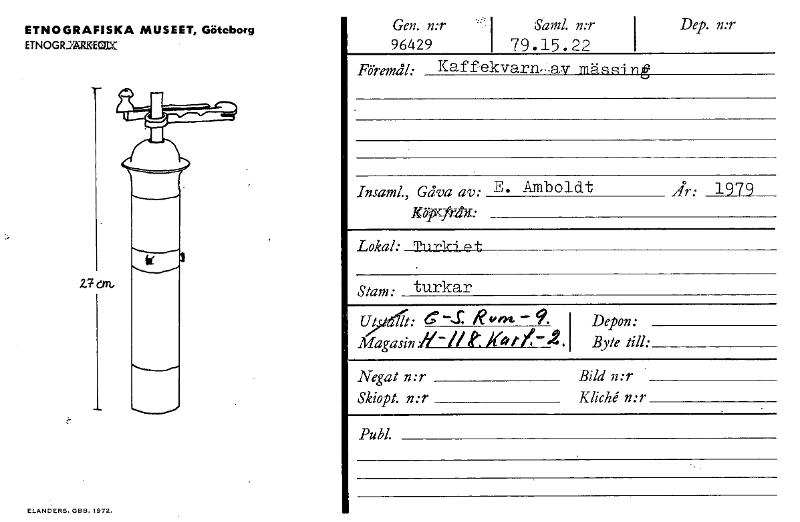 ETNOGRAFISKA MUSEET, Göteborg
ETNOGR. ARKEOL.
27 cm
ELANDERS. GBB. 1972.
Gen. n:r Saml. n:r Dep. n:r
96429 79.15.22
Föremål: Kaffekvarn av mässing
Insaml., Gåva av: E. Amboldt År: 1979
Köpt från:
Lokal: Turkiet
Stam: turkar
Utställt: G-S. Rum-9. Depon:
Magasin: H-118. Kart.-2. Byte till:
Negat n:r Bild n:r
Skiopt. n:r Kliché n:r
Publ.